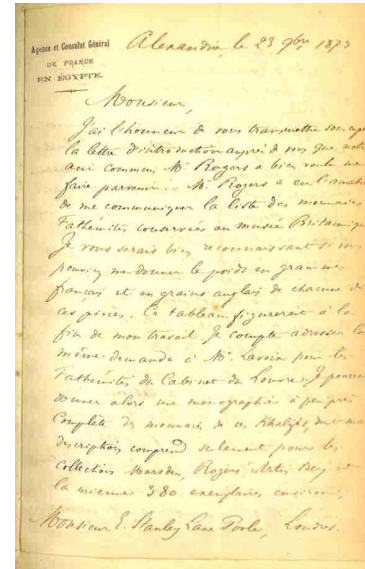 Agence et Consulat Général
DE FRANCE
EN ÉGYPTE.
Alexandrie, le 23 9bre 1873
Monsieur,
J'ai l'honneur de vous transmettre sous ce pli
la lettre d'introduction auprès de vous que notre
ami commun, Mr. Rogers a bien voulu me
faire parvenir. Mr. Rogers a eu l'amabilité
de me communiquer la liste des monnaies
Fathémites conservées au musée Britannique
Je vous serais bien reconnaissant si vous
pouviez me donner le poids en grammes
français et en grains anglais de chacune de
ces pièces. Ce tableau figurerait à la
fin de mon travail. Je compte adresser la
même demande à Mr. Lavoix pour les
Fathémites du Cabinet du Louvre. Je pourrai
donner alors une monographie à peu près
complète des monnaies de ces Khalifes, dont ma
description comprend seulement pour les
Collections Marsden, Rogers, Artin Bey et
la mienne 380 exemplaires environ.
Monsieur E. Stanley Lane Poole, Londres.